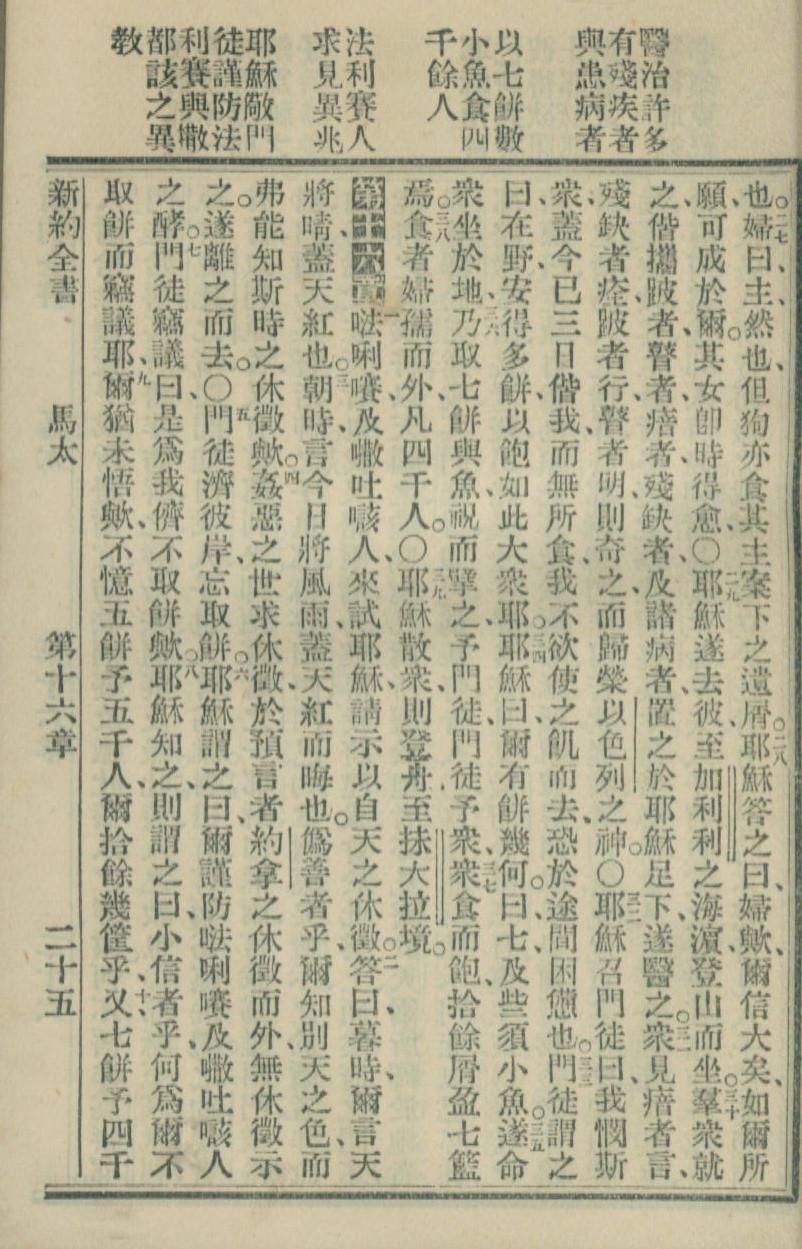 醫治許多
有殘疾者
與患病者
以七餅數
小魚食四
千餘人
法利賽人
求見異兆
耶穌敵門
徒謹防法
利賽與撒
都該之異
教
也。二七婦曰、主、然也、但狗亦食其主案下之遺屑。二八耶穌答之曰、婦歟、爾信大矣、如爾所
願、可成於爾。其女卽時得愈、〇二九耶穌遂去彼、至加利利之海濱、登山而坐。三十羣衆就
之、偕攜跛者、瞽者、瘖者、殘缺者、及諸病者、置之於耶穌足下、遂醫之。三一衆見瘖者言、
殘缺者痊、跛者行、瞽者明、則奇之、而歸榮以色列之神。〇三二耶穌召門徒曰、我憫斯
衆、蓋今已三日偕我、而無所食、我不欲使之飢而去、恐於途間困憊也。三三門徒謂之
曰、在野、安得多餅、以飽如此大衆耶。三四耶穌曰、爾有餅幾何。曰、七、及些須小魚。三五遂命
衆坐於地、三六乃取七餅與魚、祝而擘之、予門徒、門徒予衆、三七衆食而飽、拾餘屑盈七籃
焉。三八食者婦孺而外、凡四千人。〇三九耶穌散衆、則登舟至抹大拉境。
第十六章一㖿唎嘪及𠹌吐嗐人、來試耶穌、請示以自天之休徵。二答曰、暮時、爾言天
將晴、蓋天紅也。三朝時、言今日將風雨、蓋天紅而晦也。僞善者乎、爾知別天之色、而
弗能知斯時之休徵歟。四姦惡之世求休徵、於預言者約拿之休徵而外、無休徵示
之。遂離之而去。〇五門徒濟彼岸、忘取餅。六耶穌謂之曰、爾謹防㖿唎嘪及𠹌吐嗐人
之酵。七門徒竊議曰、是爲我儕不取餅歟。八耶穌知之、則謂之曰、小信者乎、何爲爾不
取餅而竊議耶、九爾猶未悟歟、不憶五餅予五千人、爾拾餘幾筐乎、十又七餅予四千
新約全書　馬太　第十六章　二十五